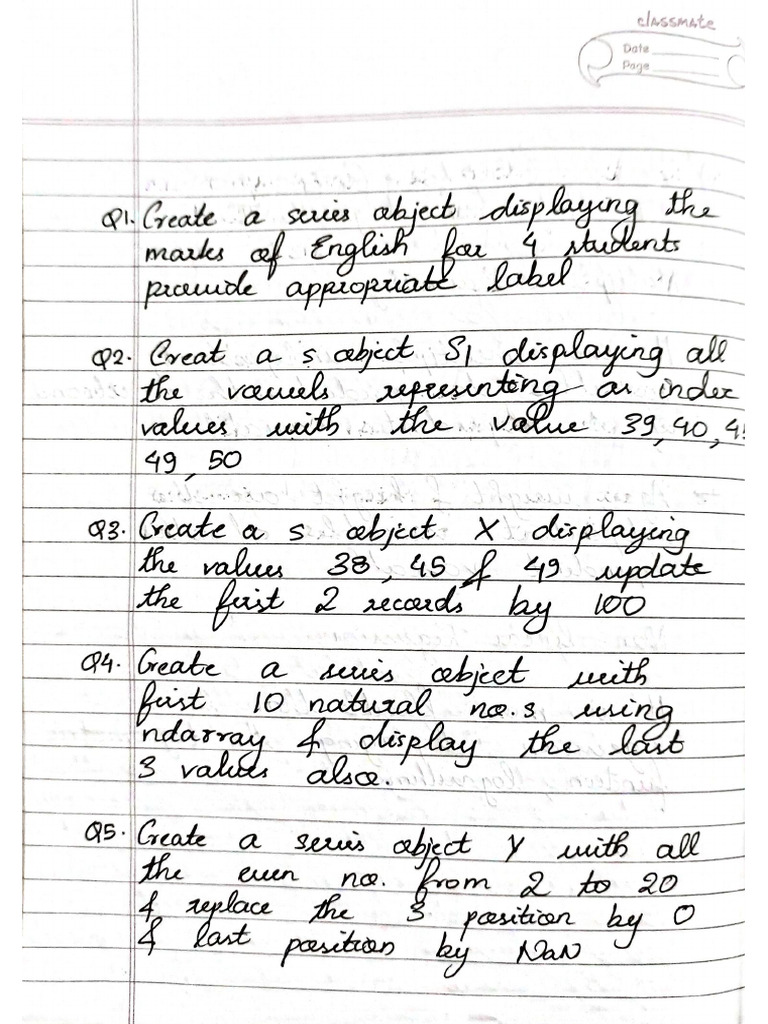 classmate
Date
Page
Q1. Create a series object displaying the
marks of English for 4 students
provide appropriate label
Q2. Creat a s object S1 displaying all
the vowels representing as index
values with the value 39, 40, 4
49, 50
Q3. Create a s object X displaying
the values 38, 45 & 49 update
the first 2 records by 100
Q4. Create a series object with
first 10 natural no.s using
ndarray & display the last
3 values also.
Q5. Create a series object Y with all
the even no. from 2 to 20
& replace the 3 position by 0
& last position by NaN